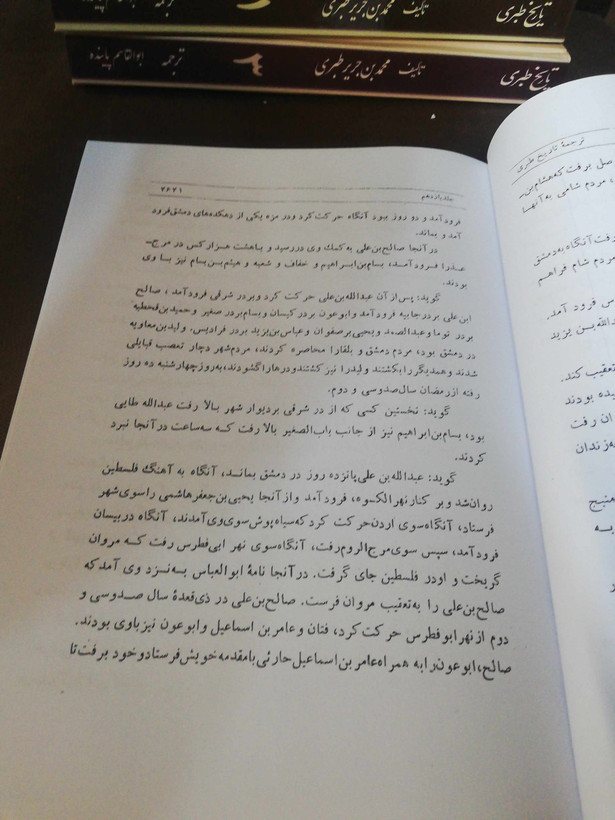 تاریخ طبری
تألیف محمد بن جریر طبری
ترجمه
تاریخ طبری
تألیف محمد بن جریر طبری
۳
ترجمه ابوالقاسم پاینده
ترجمهٔ تاریخ طبری
صل برفت که هشام‌بن‌
، مردم شامی به آنها
رفت آنگاه به دمشق
مردم شام فراهم
س فرود آمد.
دالله‌بن یزید
تعقیب کند.
یده بودند
ان رفت
به‌زندان
جلد یازدهم
۴۶۴۱
فرود آمد و دو روز ببود آنگاه حرکت کرد و در مزه یکی از دهکده‌های دمشق فرود
آمد و بماند.
در آنجا صالح‌بن‌علی به کمک وی در رسید و با هشت هزار کس در مرج‌
عذرا فرود آمد، بسام‌بن‌ابراهیم و خفاف و شعبه و هیثم‌بن‌بسام نیز با وی
بودند.
گوید: پس از آن عبدالله‌بن‌علی حرکت کرد و بر در شرقی فرود آمد، صالح
ابن‌علی بر در جابیه فرود آمد و ابوعون بر در کیسان و بسام بر در صغیر و حمید‌بن‌قحطبه
بر در توما و عبدالصمد و یحیی بر صفوان و عباس‌بن‌یزید بر در فرادیس. ولید‌بن‌معاویه
در دمشق بود، مردم دمشق و بلقا را محاصره کردند، مردم شهر دچار تعصب قبایلی
شدند و همدیگر را بکشتند و لید را نیز کشتند و درها را گشودند، به‌روز چهارشنبه ده روز
رفته از رمضان سال صد و سی و دوم.
گوید: نخستین کسی که از در شرقی بر دیوار شهر بالا رفت عبدالله طایی
بود، بسام‌بن‌ابراهیم نیز از جانب باب‌الصغیر بالا رفت که سه ساعت در آنجا نبرد
کردند.
گوید: عبدالله‌بن علی پانزده روز در دمشق بماند، آنگاه به آهنگ فلسطین
روان شد و بر کنار نهر الکسوه، فرود آمد و از آنجا یحیی‌بن‌جعفر هاشمی را سوی شهر
فرستاد، آنگاه سوی اردن حرکت کرد که سیاه پوش سوی وی آمدند، آنگاه در بیسان
فرود آمد، سپس سوی مرج‌الروم رفت، آنگاه سوی نهر ابی فطرس رفت که مروان
گریخت و او در فلسطین جای گرفت. در آنجا نامهٔ ابوالعباس به نزد وی آمد که
صالح‌بن‌علی را به تعقیب مروان فرست. صالح‌بن‌علی در ذی‌قعدهٔ سال صد و سی و
دوم از نهر ابوفطرس حرکت کرد، فتان و عامر بن اسماعیل و ابوعون نیز با وی بودند.
صالح، ابوعون را به همراه عامر بن اسماعیل حارثی با مقدمه خویش فرستاد و خود برفت تا